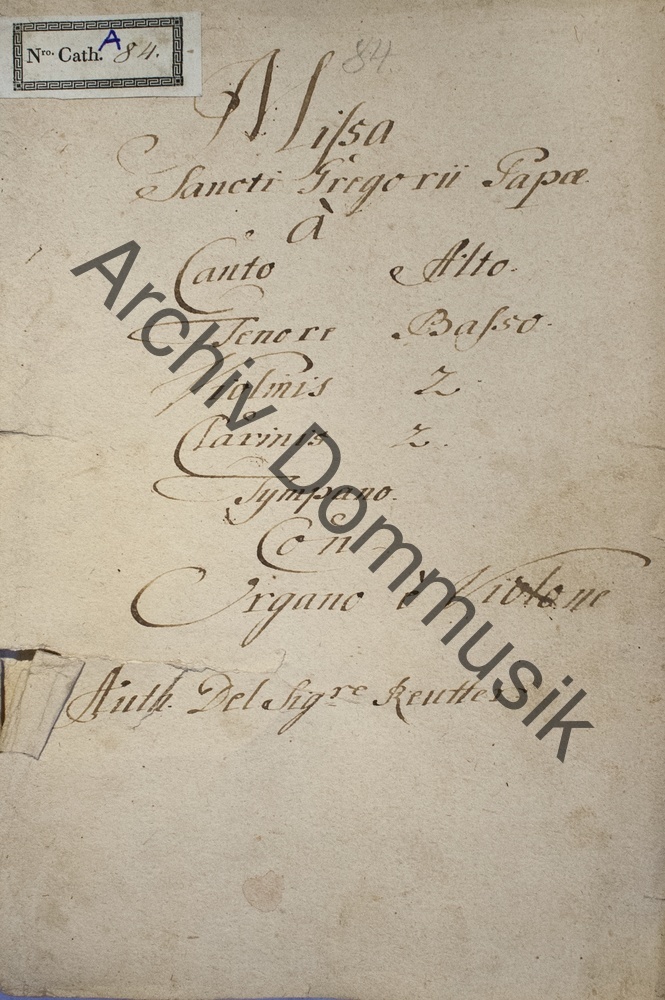 Nro. Cath. A 84.
84.
Missa
Sancti Gregorii Papæ
à
Canto Alto.
Tenore Basso.
Violinis 2.
Clarinis 2.
Tympano.
Con
Organo è Violone
Auth. Del Sigre Reutter
Archiv Dommusik